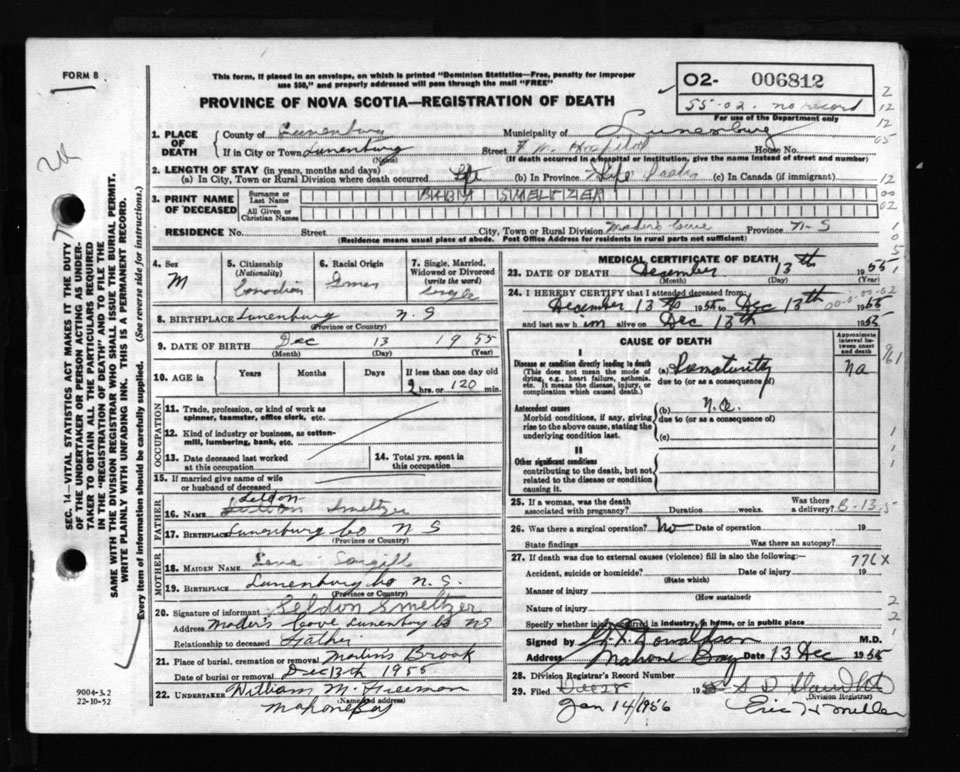 FORM 8
This form, if placed in an envelope, on which is printed "Dominion Statistics—Free, penalty for improper
use $50," and properly addressed will pass through the mail "FREE"
PROVINCE OF NOVA SCOTIA—REGISTRATION OF DEATH
02- 006812
55-02. no record
For use of the Department only
1. PLACE OF DEATH
County of Lunenburg Municipality of Lunenburg
If in City or Town Lunenburg Street Hospital House No.
(Name) (If death occurred in a hospital or institution, give the name instead of street and number)
2. LENGTH OF STAY (in years, months and days)
(a) In City, Town or Rural Division where death occurred Life (b) In Province Life (c) In Canada (if immigrant)
3. PRINT NAME OF DECEASED
Surname or Last Name BABY SMELTZER
All Given or Christian Names
RESIDENCE No. Street City, Town or Rural Division Mader's Cove Province N-S
(Residence means usual place of abode. Post Office Address for residents in rural parts not sufficient)
4. Sex M
5. Citizenship (Nationality) Canadian
6. Racial Origin
7. Single, Married, Widowed or Divorced (write the word) Single
8. BIRTHPLACE Lunenburg N.S
(Province or Country)
9. DATE OF BIRTH Dec 13 1955
(Month) (Day) (Year)
10. AGE in Years Months Days If less than one day old
2 hrs. or 120 min.
OCCUPATION
11. Trade, profession, or kind of work as spinner, teamster, office clerk, etc.
12. Kind of industry or business, as cotton-mill, lumbering, bank, etc.
13. Date deceased last worked at this occupation
14. Total yrs. spent in this occupation
15. If married give name of wife or husband of deceased
FATHER
Seldon
16. NAME Smeltzer
17. BIRTHPLACE Lunenburg Co N S
(Province or Country)
MOTHER
18. MAIDEN NAME Lena
19. BIRTHPLACE Lunenburg Co N.S.
(Province or Country)
20. Signature of informant Seldon Smeltzer
Address Mader's Cove Lunenburg Co NS
Relationship to deceased Father
21. Place of burial, cremation or removal Martin's Brook
Date of burial or removal Dec 13th 1955
22. UNDERTAKER William M.
(Name and address)
Mahone Bay
MEDICAL CERTIFICATE OF DEATH
23. DATE OF DEATH December 13th 1955
(Month) (Day)
24. I HEREBY CERTIFY that I attended deceased from:
December 13th 1955 to Dec 13th 1955
and last saw him alive on Dec 13th 1955
CAUSE OF DEATH
Approximate interval between onset and death
I
Disease or condition directly leading to death
(This does not mean the mode of dying, e.g., heart failure, asthenia, etc. It means the disease, injury, or complication which caused death.)
(a) Prematurity na
due to (or as a consequence of)
Antecedent causes
Morbid conditions, if any, giving rise to the above cause, stating the underlying condition last.
(b) n.a.
due to (or as a consequence of)
(c)
II
Other significant conditions
contributing to the death, but not related to the disease or condition causing it.
25. If a woman, was the death associated with pregnancy? Duration weeks. Was there a delivery? 8-13
26. Was there a surgical operation? No Date of operation 19
State findings Was there an autopsy?
27. If death was due to external causes (violence) fill in also the following:—
776X
Accident, suicide or homicide? Date of injury 19
(State which)
Manner of injury
(How sustained)
Nature of injury
Specify whether injury occurred in industry, in home, or in public place
Signed by Donaldson M.D.
Address Mahone Bay Date 13 Dec 1955
28. Division Registrar's Record Number
29. Filed Dec 28 19
(Division Registrar)
Jan 14/1956 Eric H Millen
SEC. 14—VITAL STATISTICS ACT MAKES IT THE DUTY
OF THE UNDERTAKER OR PERSON ACTING AS UNDER-
TAKER TO OBTAIN ALL THE PARTICULARS REQUIRED
IN THE "REGISTRATION OF DEATH" AND TO FILE THE
SAME WITH THE DIVISION REGISTRAR WHO SHALL ISSUE THE BURIAL PERMIT.
WRITE PLAINLY WITH UNFADING INK. THIS IS A PERMANENT RECORD.
Every item of information should be carefully supplied. (See reverse side for instructions.)
9004-3.2
22-10-52